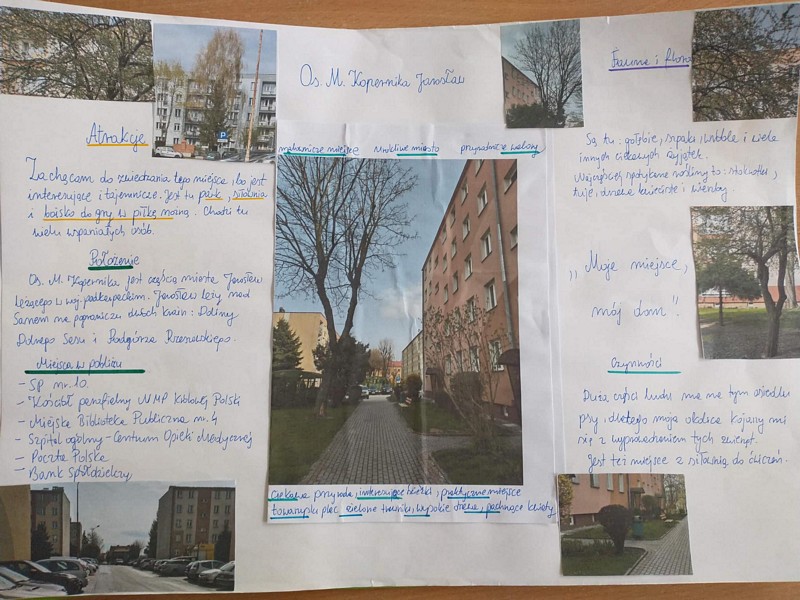 Os. M. Kopernika Jarosław
Fauna i flora
Atrakcje
Zachęcam do zwiedzania tego miejsca, bo jest
interesujące i tajemnicze. Jest tu park, siłownia
i boisko do gry w piłkę nożną. Chodzi tu
wielu wspaniałych osób.
Położenie
Os. M. Kopernika jest częścią miasta Jarosław
leżącego w woj. podkarpackim. Jarosław leży nad
Sanem na pograniczu dwóch krain: Doliny
Dolnego Sanu i Podgórza Rzeszowskiego.
Miejsca w pobliżu
- SP nr. 10.
- Kościół parafialny NMP Królowej Polski
- Miejska Biblioteka Publiczna nr. 4
- Szpital ogólny - Centrum Opieki Medycznej
- Poczta Polska
- Bank Spółdzielczy
malownicze miejsce urokliwe miasto przyjazne
Ciekawa przyroda, interesujące bloki, praktyczne miejsce
towarzyski plac, zielone trawniki, wysokie drzewa, pachnące kwiaty
Są tu: gołębie, szpaki, wróble i wiele
innych ciekawych żyjątek.
Najczęściej spotykane rośliny to: stokrotki,
tuje, drzewa kwieciste i wierzby.
„Moje miejsce,
mój dom".
Czynności
Duża część ludu ma na tym osiedlu
psy, dlatego moja okolica kojarzy mi
się z wyprowadzaniem tych zwierząt.
Jest też miejsce z siłownią do ćwiczeń.